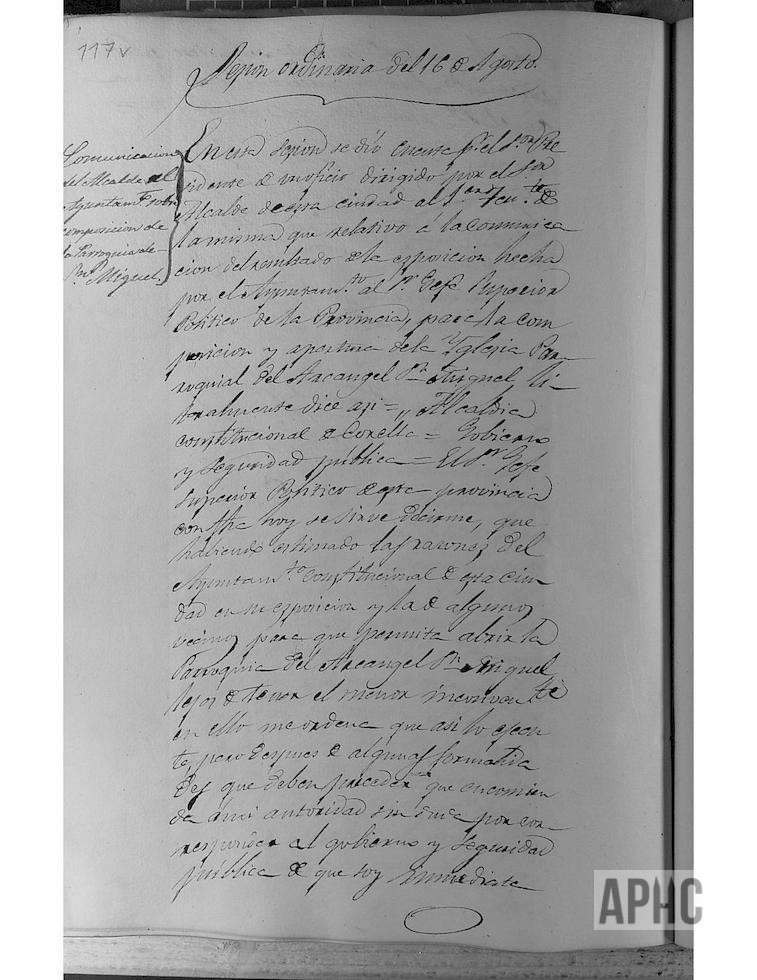 117v
Sesion ordinaria del 16 de Agosto.
Comunicacion
del Alcalde al
Ayuntamto. sobre
composicion de
la Parroquia de
Sn. Miguel.
En esta sesion se dió cuenta pr. el Sor. Pre
sidente de un oficio dirigido por el Sor
Alcalde de esta ciudad al Sor. Tente. de
la misma que relativo á la comunica
cion del resultado de la exposicion hecha
por el Ayuntamto. al Sr. Gefe Superior
Politico de la Provincia, para la com
posicion y apertura de la Yglesia Par-
roquial del Arcangel Sn. Miguel, li-
teralmente dice asi = „ Alcaldia
constitucional de Corella = Gobierno
y seguridad publica = El Sr. Gefe
superior Politico de esta provincia
con fha hoy se sirve decirme, que
habiendo estimado las razones del
Ayuntamto. constitucional de esta ciu
dad en su exposicion y la de algunos
vecinos para que permita abrir la
Parroquia del Arcangel Sn. Miguel
lejos de tener el menor inconvente
en ello me ordena que asi lo ejecu
te, pero despues de algunas formalida
des que deben preceder que encomien
da á mi autoridad sin duda por cor-
responder al gobierno y seguridad
publica de que soy inmediata
APHC